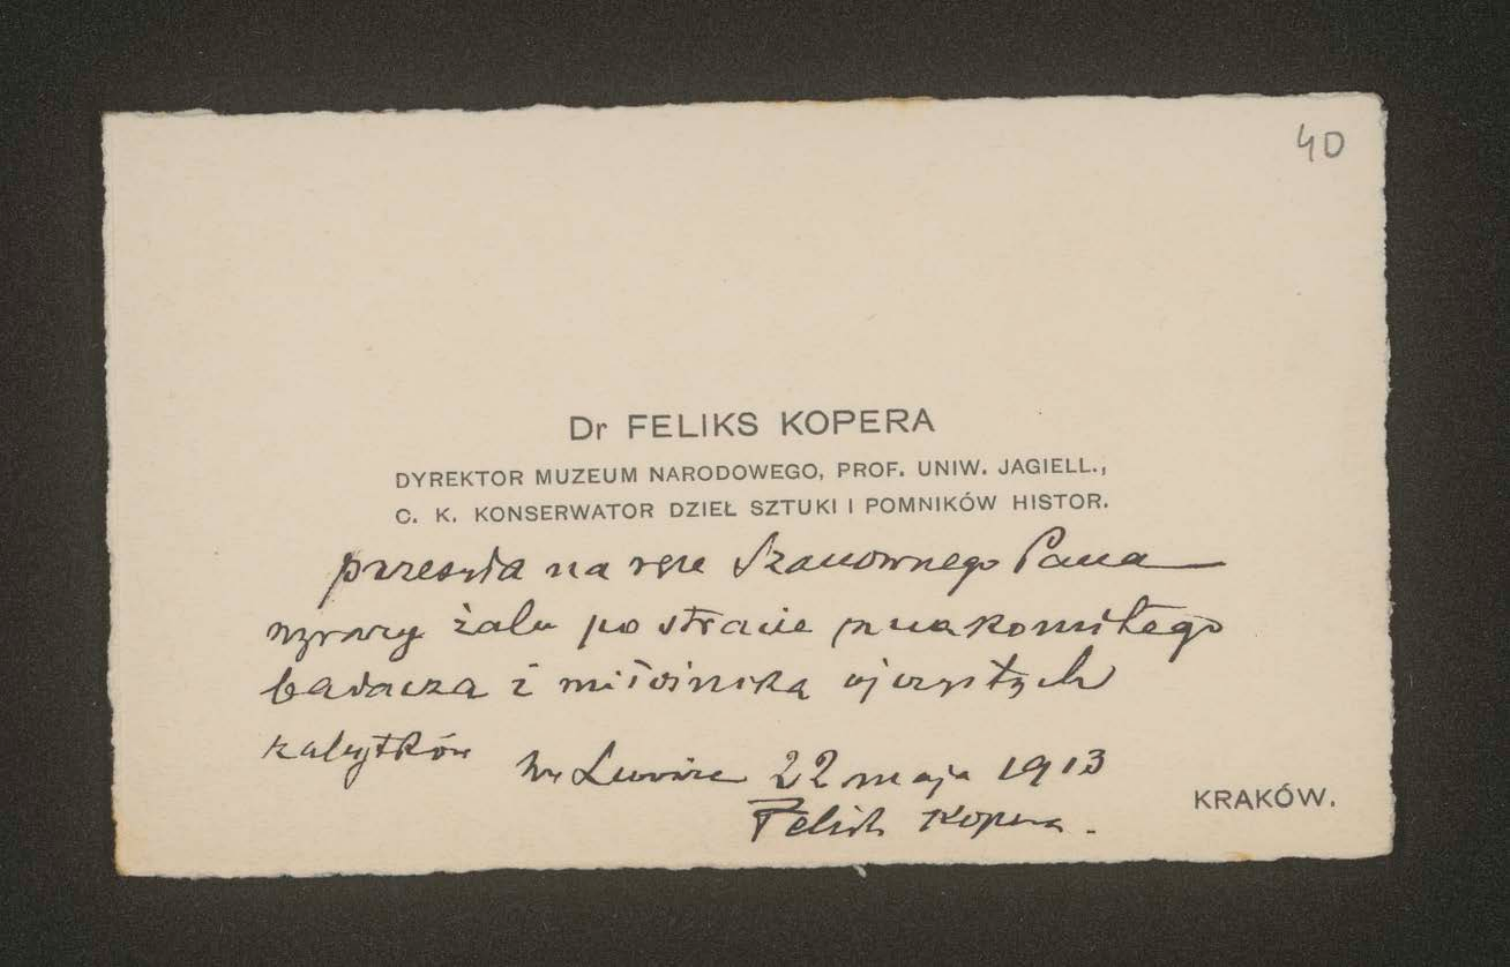 40
Dr FELIKS KOPERA
DYREKTOR MUZEUM NARODOWEGO, PROF. UNIW. JAGIELL.,
C. K. KONSERWATOR DZIEŁ SZTUKI I POMNIKÓW HISTOR.
przesyła na ręce Szanownego Pana
wyrazy żalu po stracie znakomitego
badacza i miłośnika ojczystych
zabytków
We Lwowie 22 maja 1913
Feliks Kopera.
KRAKÓW.